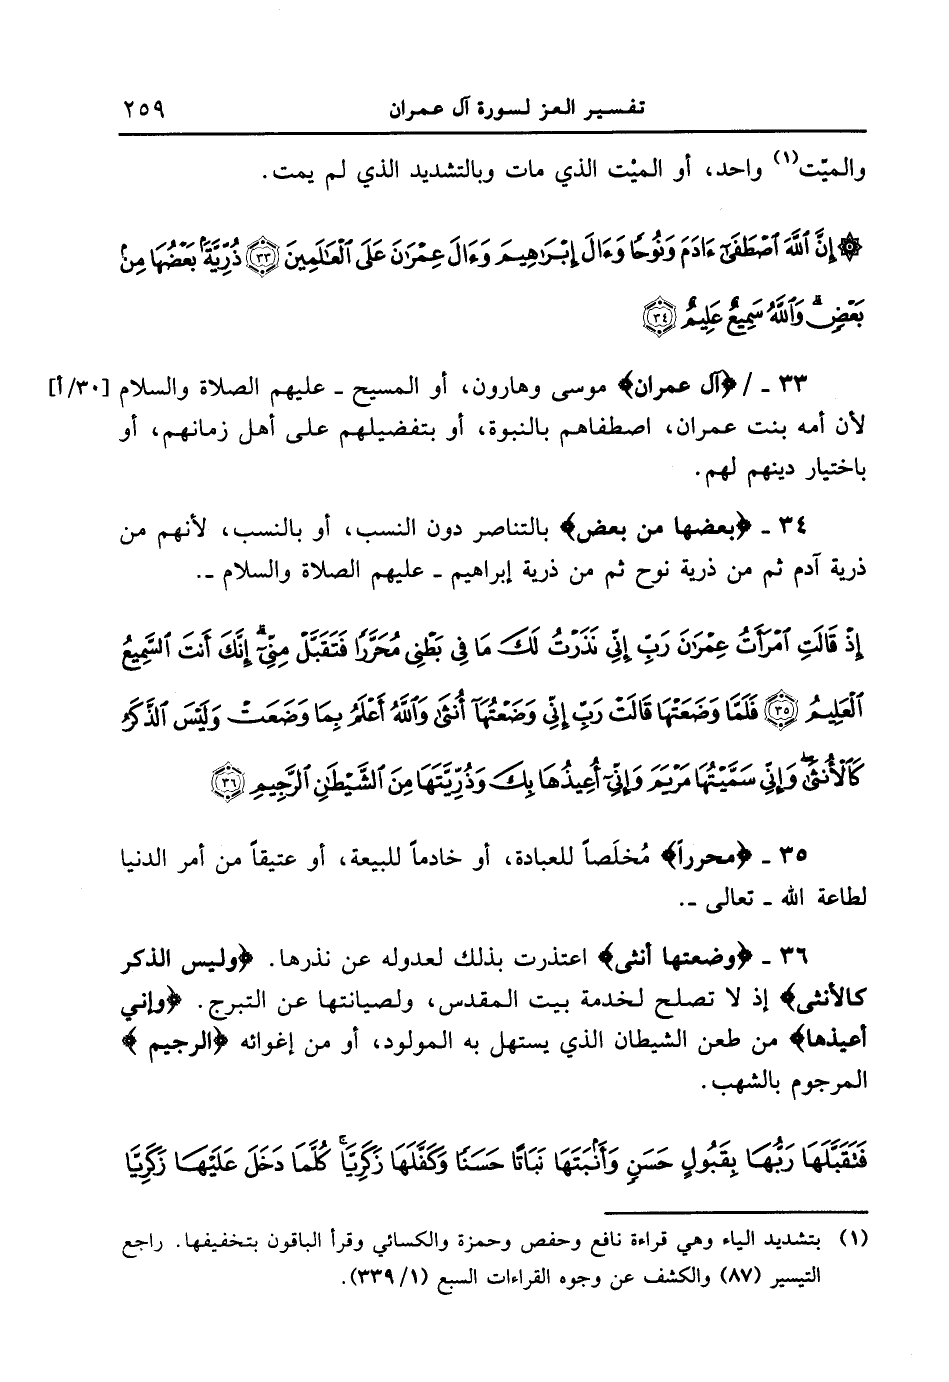 تفسير العز لسورة آل عمران ٢٥٩
والميّت(١) واحد، أو الميْت الذي مات وبالتشديد الذي لم يمت.
۞ إِنَّ ٱللَّهَ ٱصْطَفَىٰٓ ءَادَمَ وَنُوحًا وَءَالَ إِبْرَٰهِيمَ وَءَالَ عِمْرَٰنَ عَلَى ٱلْعَٰلَمِينَ ﴿٣٣﴾ ذُرِّيَّةًۢ بَعْضُهَا مِنۢ
بَعْضٍۗ وَٱللَّهُ سَمِيعٌ عَلِيمٌ ﴿٣٤﴾
٣٣ ـ / ﴿آل عمران﴾ موسى وهارون، أو المسيح ـ عليهم الصلاة والسلام [٣٠/أ]
لأن أمه بنت عمران، اصطفاهم بالنبوة، أو بتفضيلهم على أهل زمانهم، أو
باختيار دينهم لهم.
٣٤ ـ ﴿بعضها من بعض﴾ بالتناصر دون النسب، أو بالنسب، لأنهم من
ذرية آدم ثم من ذرية نوح ثم من ذرية إبراهيم ـ عليهم الصلاة والسلام ـ.
إِذْ قَالَتِ ٱمْرَأَتُ عِمْرَٰنَ رَبِّ إِنِّى نَذَرْتُ لَكَ مَا فِى بَطْنِى مُحَرَّرًا فَتَقَبَّلْ مِنِّىٓۖ إِنَّكَ أَنتَ ٱلسَّمِيعُ
ٱلْعَلِيمُ ﴿٣٥﴾ فَلَمَّا وَضَعَتْهَا قَالَتْ رَبِّ إِنِّى وَضَعْتُهَآ أُنثَىٰ وَٱللَّهُ أَعْلَمُ بِمَا وَضَعَتْ وَلَيْسَ ٱلذَّكَرُ
كَٱلْأُنثَىٰۖ وَإِنِّى سَمَّيْتُهَا مَرْيَمَ وَإِنِّىٓ أُعِيذُهَا بِكَ وَذُرِّيَّتَهَا مِنَ ٱلشَّيْطَٰنِ ٱلرَّجِيمِ ﴿٣٦﴾
٣٥ ـ ﴿محرراً﴾ مُخلَصاً للعبادة، أو خادماً للبيعة، أو عتيقاً من أمر الدنيا
لطاعة الله ـ تعالى ـ.
٣٦ ـ ﴿وضعتها أنثى﴾ اعتذرت بذلك لعدوله عن نذرها. ﴿وليس الذكر
كالأنثى﴾ إذ لا تصلح لخدمة بيت المقدس، ولصيانتها عن التبرج. ﴿وإني
أعيذها﴾ من طعن الشيطان الذي يستهل به المولود، أو من إغوائه ﴿الرجيم﴾
المرجوم بالشهب.
فَتَقَبَّلَهَا رَبُّهَا بِقَبُولٍ حَسَنٍ وَأَنۢبَتَهَا نَبَاتًا حَسَنًا وَكَفَّلَهَا زَكَرِيَّاۖ كُلَّمَا دَخَلَ عَلَيْهَا زَكَرِيَّا
(١) بتشديد الياء وهي قراءة نافع وحفص وحمزة والكسائي وقرأ الباقون بتخفيفها. راجع
التيسير (٨٧) والكشف عن وجوه القراءات السبع (١/ ٣٣٩).